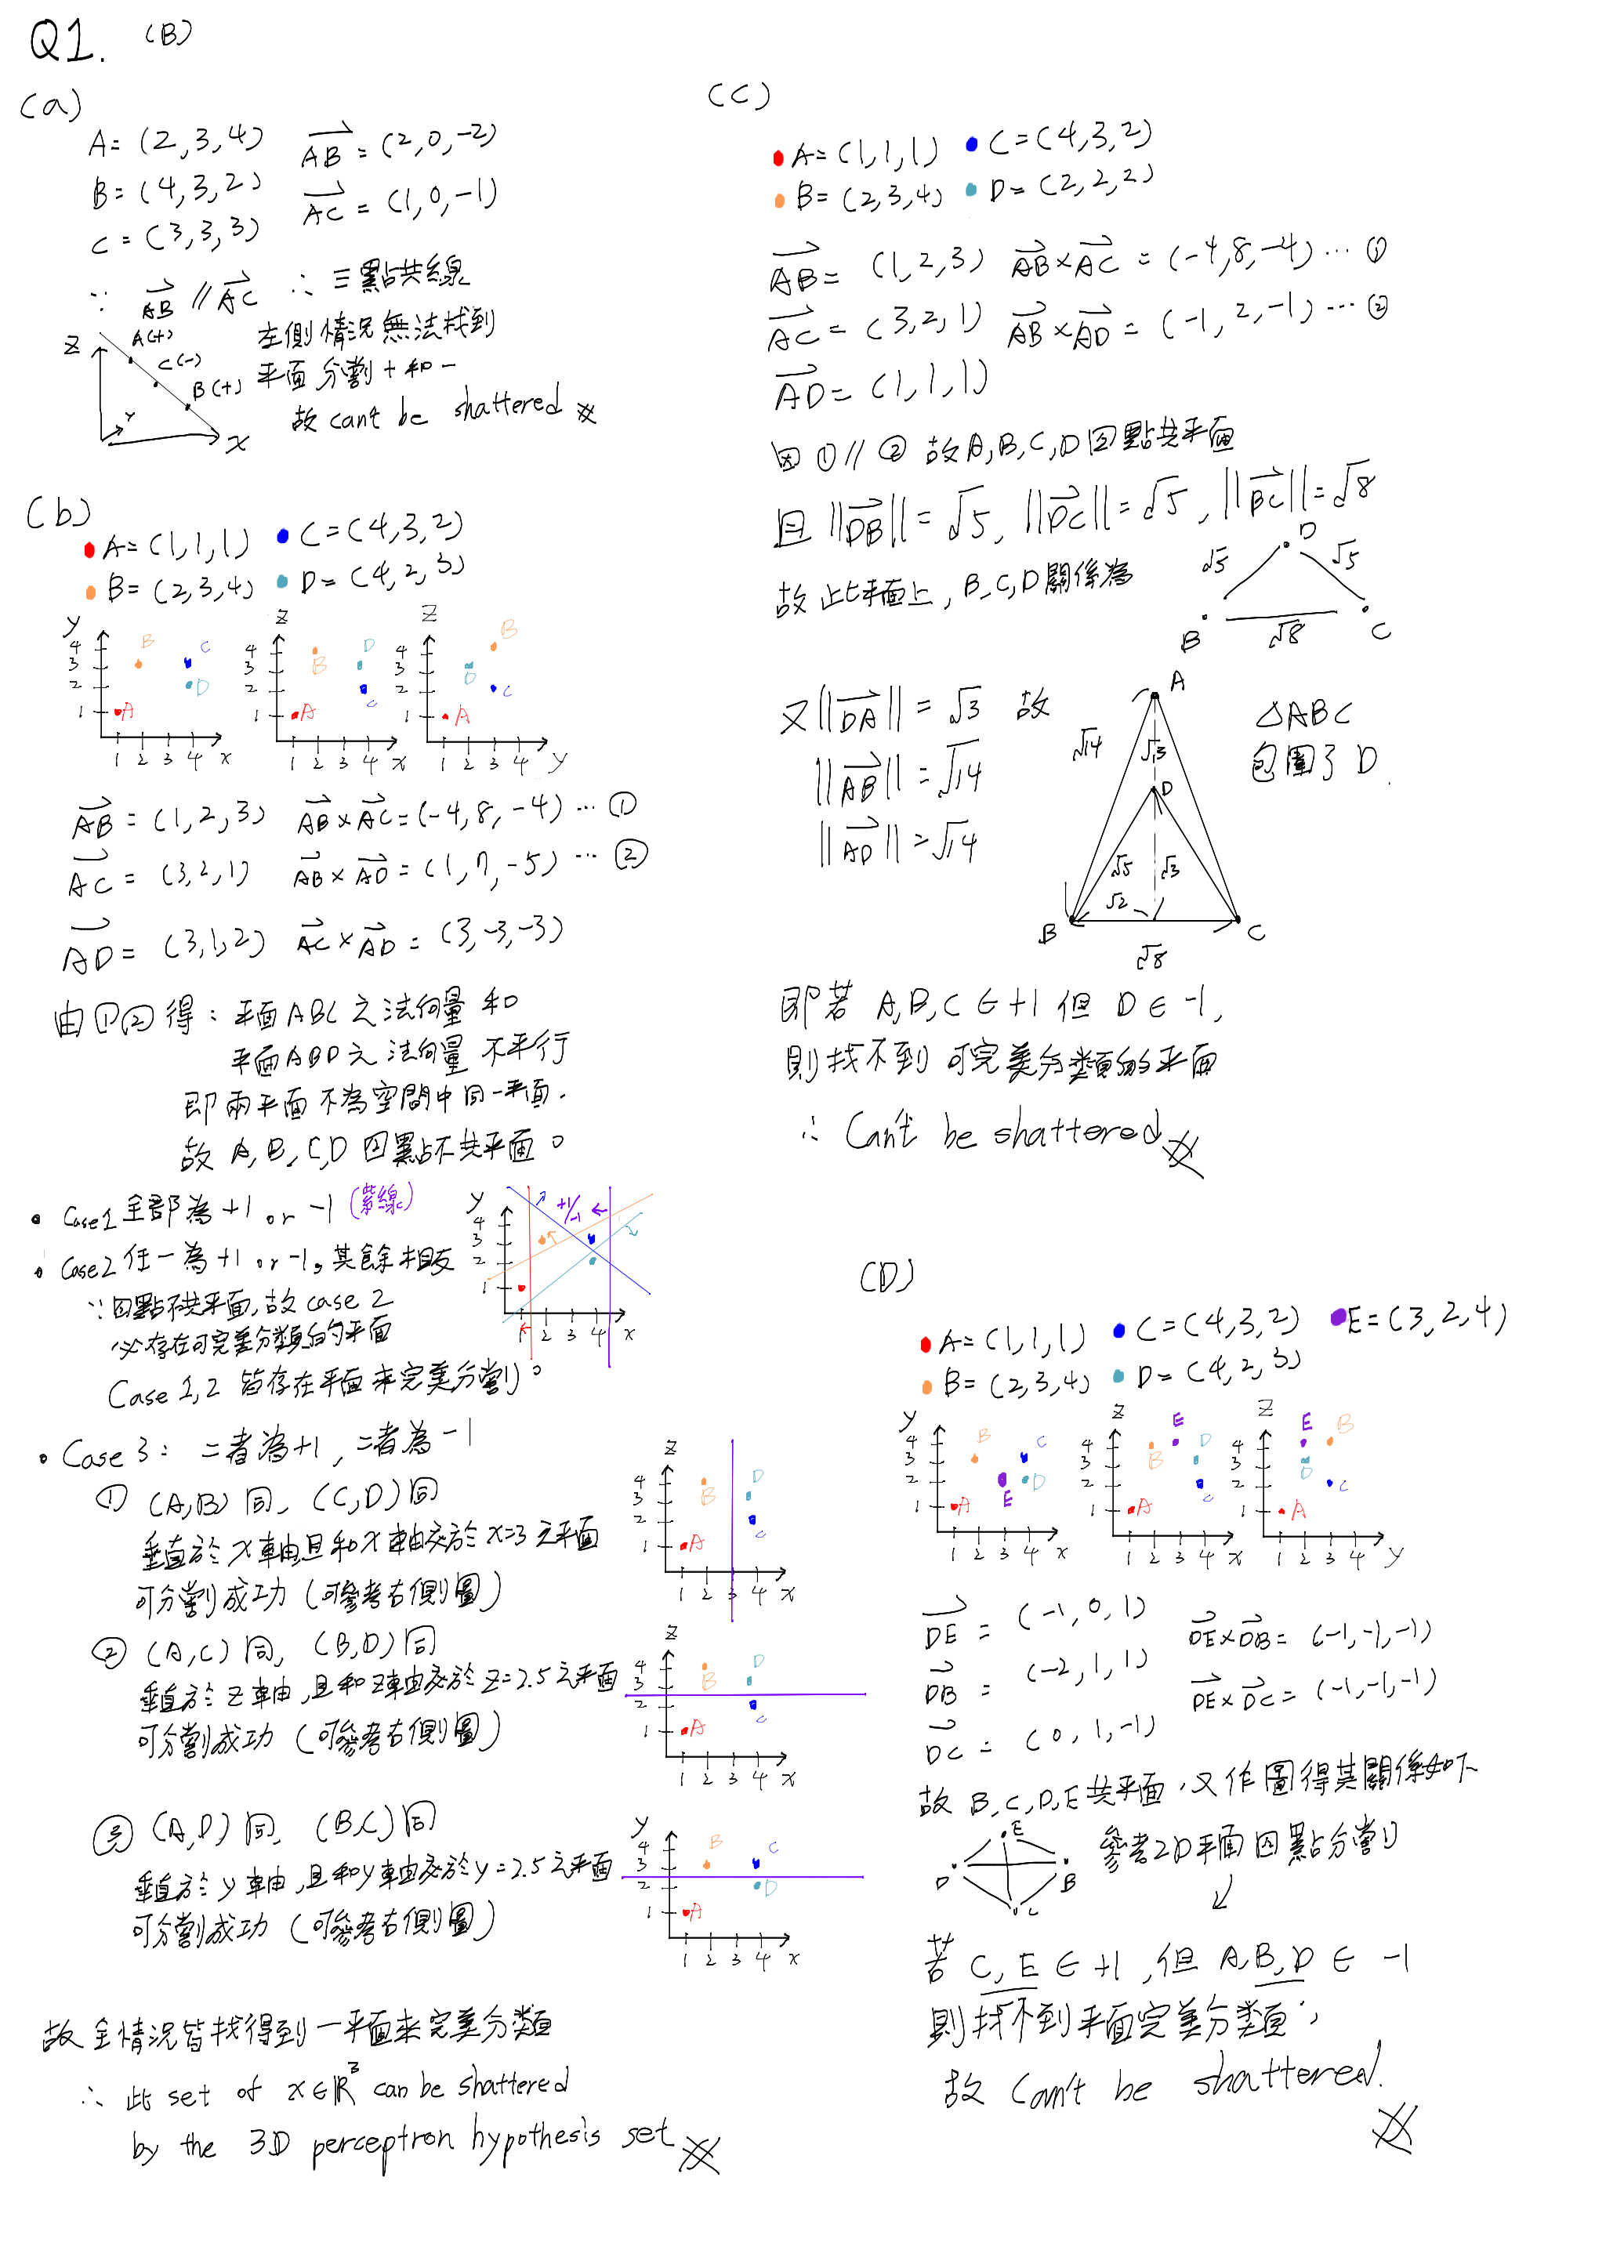 Q1. (B)
(a)
A= (2,3,4) AB = (2,0,-2)
B= (4,3,2) AC = (1,0,-1)
C = (3,3,3)
∵ AB // AC ∴ 三點共線
左側情況無法找到
平面分割 + 和 -
故 can't be shattered
Z A(+) C(-) B(+) Y X
(b)
A=(1,1,1) C=(4,3,2)
B=(2,3,4) D=(4,2,3)
y 4 3 2 1 B C D A 1 2 3 4 x
Z 4 3 2 1 B D C A 1 2 3 4 x
Z 4 3 2 1 B D C A 1 2 3 4 y
AB = (1,2,3) AB×AC=(-4,8,-4) … ①
AC = (3,2,1) AB×AD=(1,7,-5) … ②
AD = (3,1,2) AC×AD = (3,-3,-3)
由①②得: 平面ABC之法向量和
平面ABD之法向量不平行
即兩平面不為空間中同一平面.
故 A,B,C,D 四點不共平面。
• Case1 全部為 +1 or -1 (紫線)
• Case2 任一為 +1 or -1, 其餘相反
∵四點不共平面, 故 case 2
必存在可完美分類的平面
Case 1,2 皆存在平面來完美分割。
y 4 3 2 1 +1/-1 1 2 3 4 x
• Case 3: 二者為+1, 二者為-1
① (A,B)同, (C,D)同
垂直於x軸,且和x軸交於x=3之平面
可分割成功 (可參考右側圖)
Z 4 3 2 1 B D C A 1 2 3 4 x
② (A,C)同, (B,D)同
垂直於z軸,且和z軸交於z=2.5之平面
可分割成功 (可參考右側圖)
Z 4 3 2 1 B D C A 1 2 3 4 x
③ (A,D)同, (B,C)同
垂直於y軸,且和y軸交於y=2.5之平面
可分割成功 (可參考右側圖)
y 4 3 2 1 B C D A 1 2 3 4 x
故全情況皆找得到一平面來完美分類
∴ 此 set of x∈ℝ³ can be shattered
by the 3D perceptron hypothesis set
(C)
A=(1,1,1) C=(4,3,2)
B=(2,3,4) D=(2,2,2)
AB= (1,2,3) AB×AC = (-4,8,-4) … ①
AC = (3,2,1) AB×AD = (-1,2,-1) … ②
AD = (1,1,1)
因①//② 故A,B,C,D四點共平面
且 ||DB||=√5, ||DC||=√5, ||BC||=√8
故此平面上, B,C,D關係為
D √5 √5 B √8 C
又||DA|| = √3 故
||AB|| = √14
||AD|| = √14
A √14 √3 D √5 √3 √2 B C √8
△ABC
包圍了D.
即若 A,B,C ∈ +1 但 D ∈ -1,
則找不到可完美分類的平面
∴ Can't be shattered
(D)
A=(1,1,1) C=(4,3,2) E=(3,2,4)
B=(2,3,4) D=(4,2,3)
y 4 3 2 1 B C D E A 1 2 3 4 x
Z 4 3 2 1 E B D C A 1 2 3 4 x
Z 4 3 2 1 E B D C A 1 2 3 4 y
DE = (-1,0,1) DE×DB= (-1,-1,-1)
DB = (-2,1,1) DE×DC= (-1,-1,-1)
DC = (0,1,-1)
故 B,C,D,E共平面,又作圖得其關係如下
E D B C
參考2D平面四點分割
若 C,E ∈ +1, 但 A,B,D ∈ -1
則找不到平面完美分類,
故 Can't be shattered.